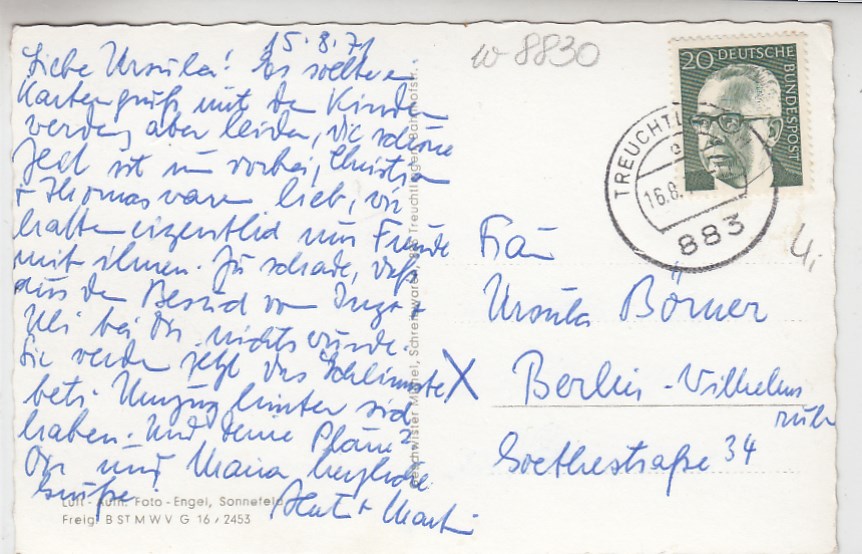 15.8.71
Liebe Ursula! Es sollte ein
Kartengruß mit den Kindern
werden, aber leider, die schöne
Zeit ist nun vorbei, Christian
+ Thomas waren lieb, wir
hatten eigentlich nur Freude
mit ihnen. Zu schade, daß
aus dem Besuch von Ingo +
Uli bei Dir nichts wurde.
Sie werden jetzt das Schlimmste
betr. Umzug hinter sich
haben. Und deine Pläne?
Dir und Maria herzliche
Grüße.
+
Luft-Aufn. Foto-Engel, Sonnefeld
Freig. B ST M W V G 16/2453
Geschwister Michel, Schreibwaren, 883 Treuchtlingen, Bahnhofstr.
w-8830
20 DEUTSCHE BUNDESPOST
TREUCHTL
16.8.
883
4,
Frau
Ursula Börner
X Berlin-Wilhelms
ruh
Goethestraße 34